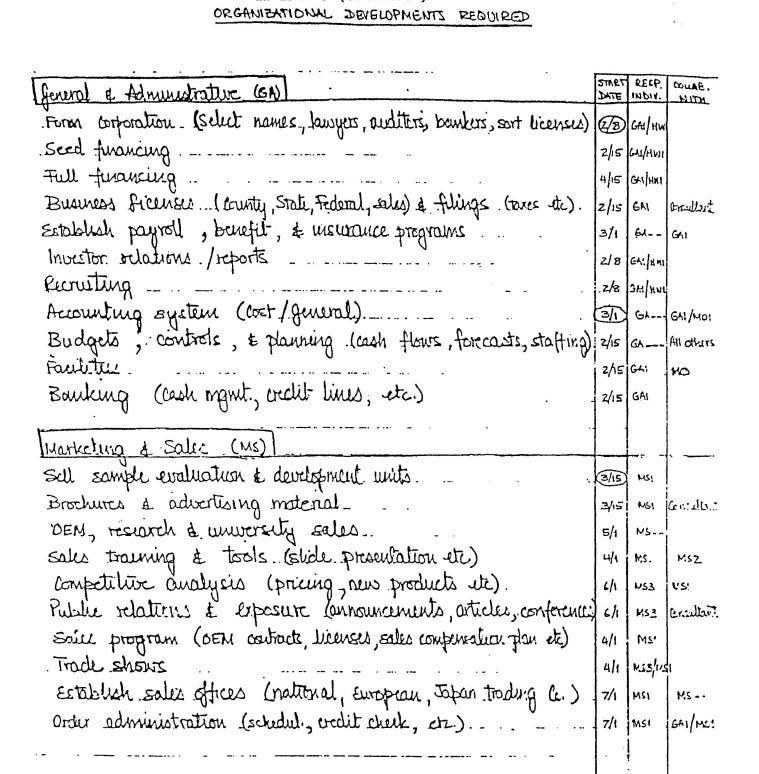 ORGANIZATIONAL DEVELOPMENTS REQUIRED
General & Administrative (GA) START DATE RESP. INDIV. COLLAB. WITH
Form corporation (select names, lawyers, auditers, bankers, sort licenses) 2/8 GA1/HW
Seed financing 2/15 GA1/HW1
Full financing 4/15 GA1/HW1
Business licenses (County, State, Federal, sales) & filings (taxes etc). 2/15 GA1 Consultant
Establish payroll, benefit, & insurance programs 3/1 GA-- GA1
Investor relations/reports 2/8 GA1/HW1
Recruiting 2/8 GA1/HW1
Accounting system (cost/general) 3/1 GA--- GA1/MO1
Budgets, controls, & planning (cash flows, forecasts, staffing) 2/15 GA--- All others
Facilities 2/15 GA1 MO
Banking (cash mgmt., credit lines, etc.) 2/15 GA1
Marketing & Sales (MS)
Sell sample evaluation & development units. 3/15 MS1
Brochures & advertising material 3/15 MS1 Consultant
OEM, research & university sales 5/1 MS--
Sales training & tools (slide presentation etc) 4/1 MS. MS2
Competitive analysis (pricing, new products etc). 6/1 MS3
Public relations & exposure (announcements, articles, conferences) 6/1 MS3 Consultant
Sales program (OEM contracts, licenses, sales compensation plan etc) 4/1 MS'
Trade shows 4/1 MS3/MS1
Establish sales offices (national, European, Japan trading Co.) 7/1 MS1 MS--
Order administration (schedul., credit check, etc.) 7/1 MS1 GA1/MC1